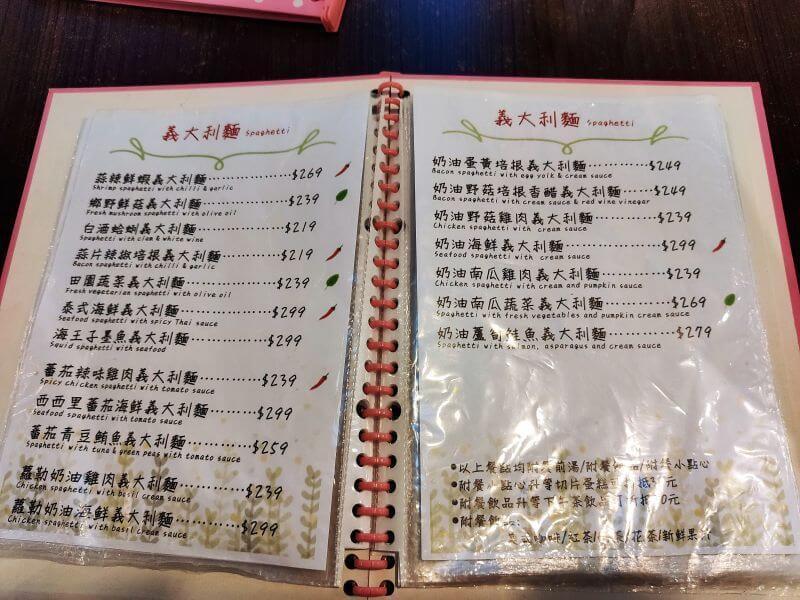 義大利麵 Spaghetti
蒜辣鮮蝦義大利麵 $269
Shrimp spaghetti with chilli & garlic
鄉野鮮菇義大利麵 $239
Fresh mushroom spaghetti with olive oil
白酒蛤蜊義大利麵 $219
Spaghetti with clam & white wine
蒜片辣椒培根義大利麵 $219
Bacon spaghetti with chilli & garlic
田園蔬菜義大利麵 $239
Fresh vegetarian spaghetti with olive oil
泰式海鮮義大利麵 $299
Seafood spaghetti with spicy Thai sauce
海王子墨魚義大利麵 $299
Squid spaghetti with seafood
蕃茄辣味雞肉義大利麵 $239
Spicy chicken spaghetti with tomato sauce
西西里蕃茄海鮮義大利麵 $299
Seafood spaghetti with tomato sauce
蕃茄青豆鮪魚義大利麵 $259
Spaghetti with tuna & green peas with tomato sauce
蘿勒奶油雞肉義大利麵 $239
Chicken spaghetti with basil cream sauce
蘿勒奶油海鮮義大利麵 $299
Chicken spaghetti with basil cream sauce
義大利麵 Spaghetti
奶油蛋黃培根義大利麵 $249
Bacon spaghetti with egg yolk & cream sauce
奶油野菇培根香醋義大利麵 $249
Bacon spaghetti with cream sauce & red wine vinegar
奶油野菇雞肉義大利麵 $239
Chicken spaghetti with cream sauce
奶油海鮮義大利麵 $299
Seafood spaghetti with cream sauce
奶油南瓜雞肉義大利麵 $239
Chicken spaghetti with cream and pumpkin sauce
奶油南瓜蔬菜義大利麵 $269
Spaghetti with fresh vegetables and pumpkin cream sauce
奶油蘆筍鮭魚義大利麵 $279
Spaghetti with salmon, asparagus and cream sauce
●以上餐點均附餐前湯/附餐 /附餐小點心
●附餐小點心升等切片蛋糕 折抵 元
●附餐飲品升等下午茶飲品可折抵 0元
●附餐飲
咖啡/紅茶/ /花茶/新鮮果汁